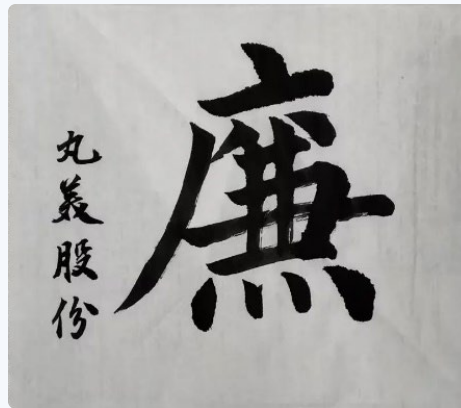 廉
丸美股份